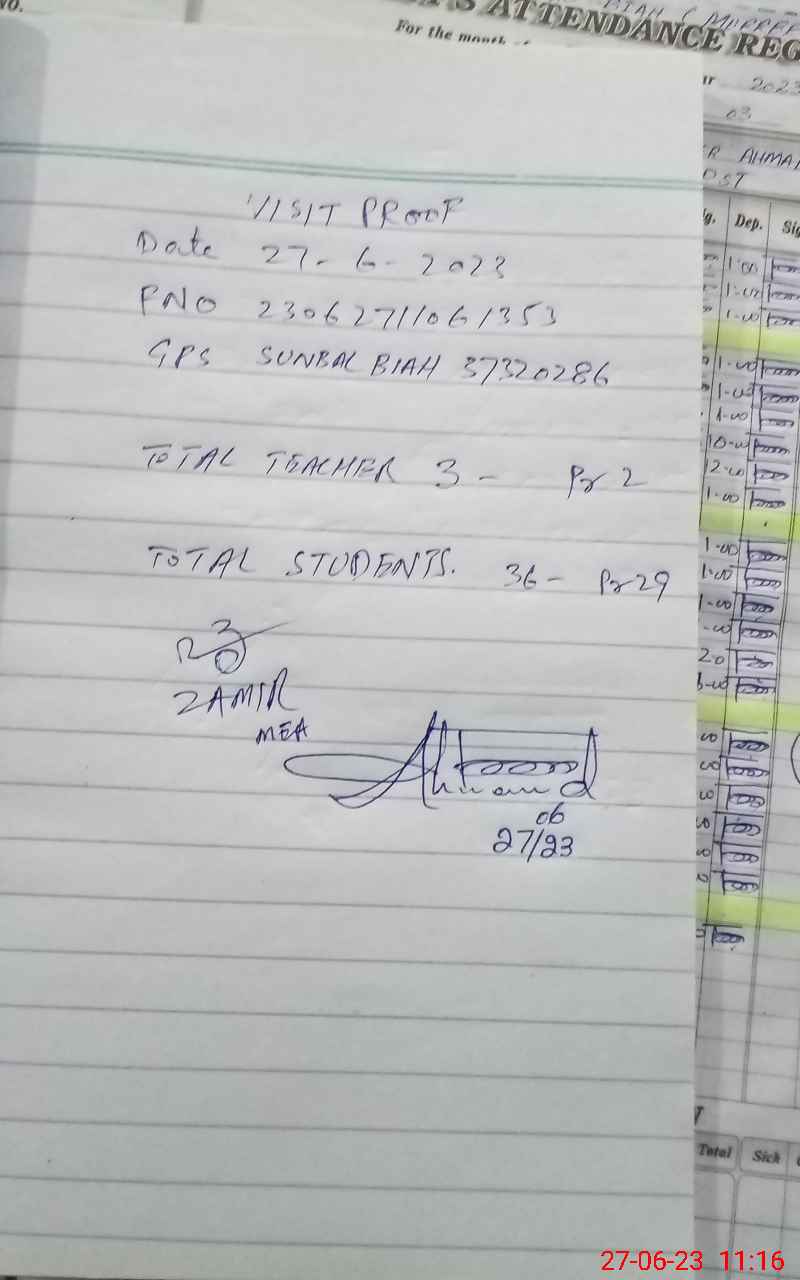 VISIT PROOF
Date 27-6-2023
PNO 23062711061353
GPS SUNBAL BIAH 37320286
TOTAL TEACHER 3 - Pr 2
TOTAL STUDENTS. 36 - Pr 29
ZAMIR
MEA
Ahmad
06
27/23
NO.
'S ATTENDANCE REG
For the month
2023
03
R AHMA
PST
Dep. Sig
1-00
1-00
1-00
1-00
1-00
1-00
10-00
12-00
1-00
1-00
1-00
1-00
Total Sick
27-06-23 11:16